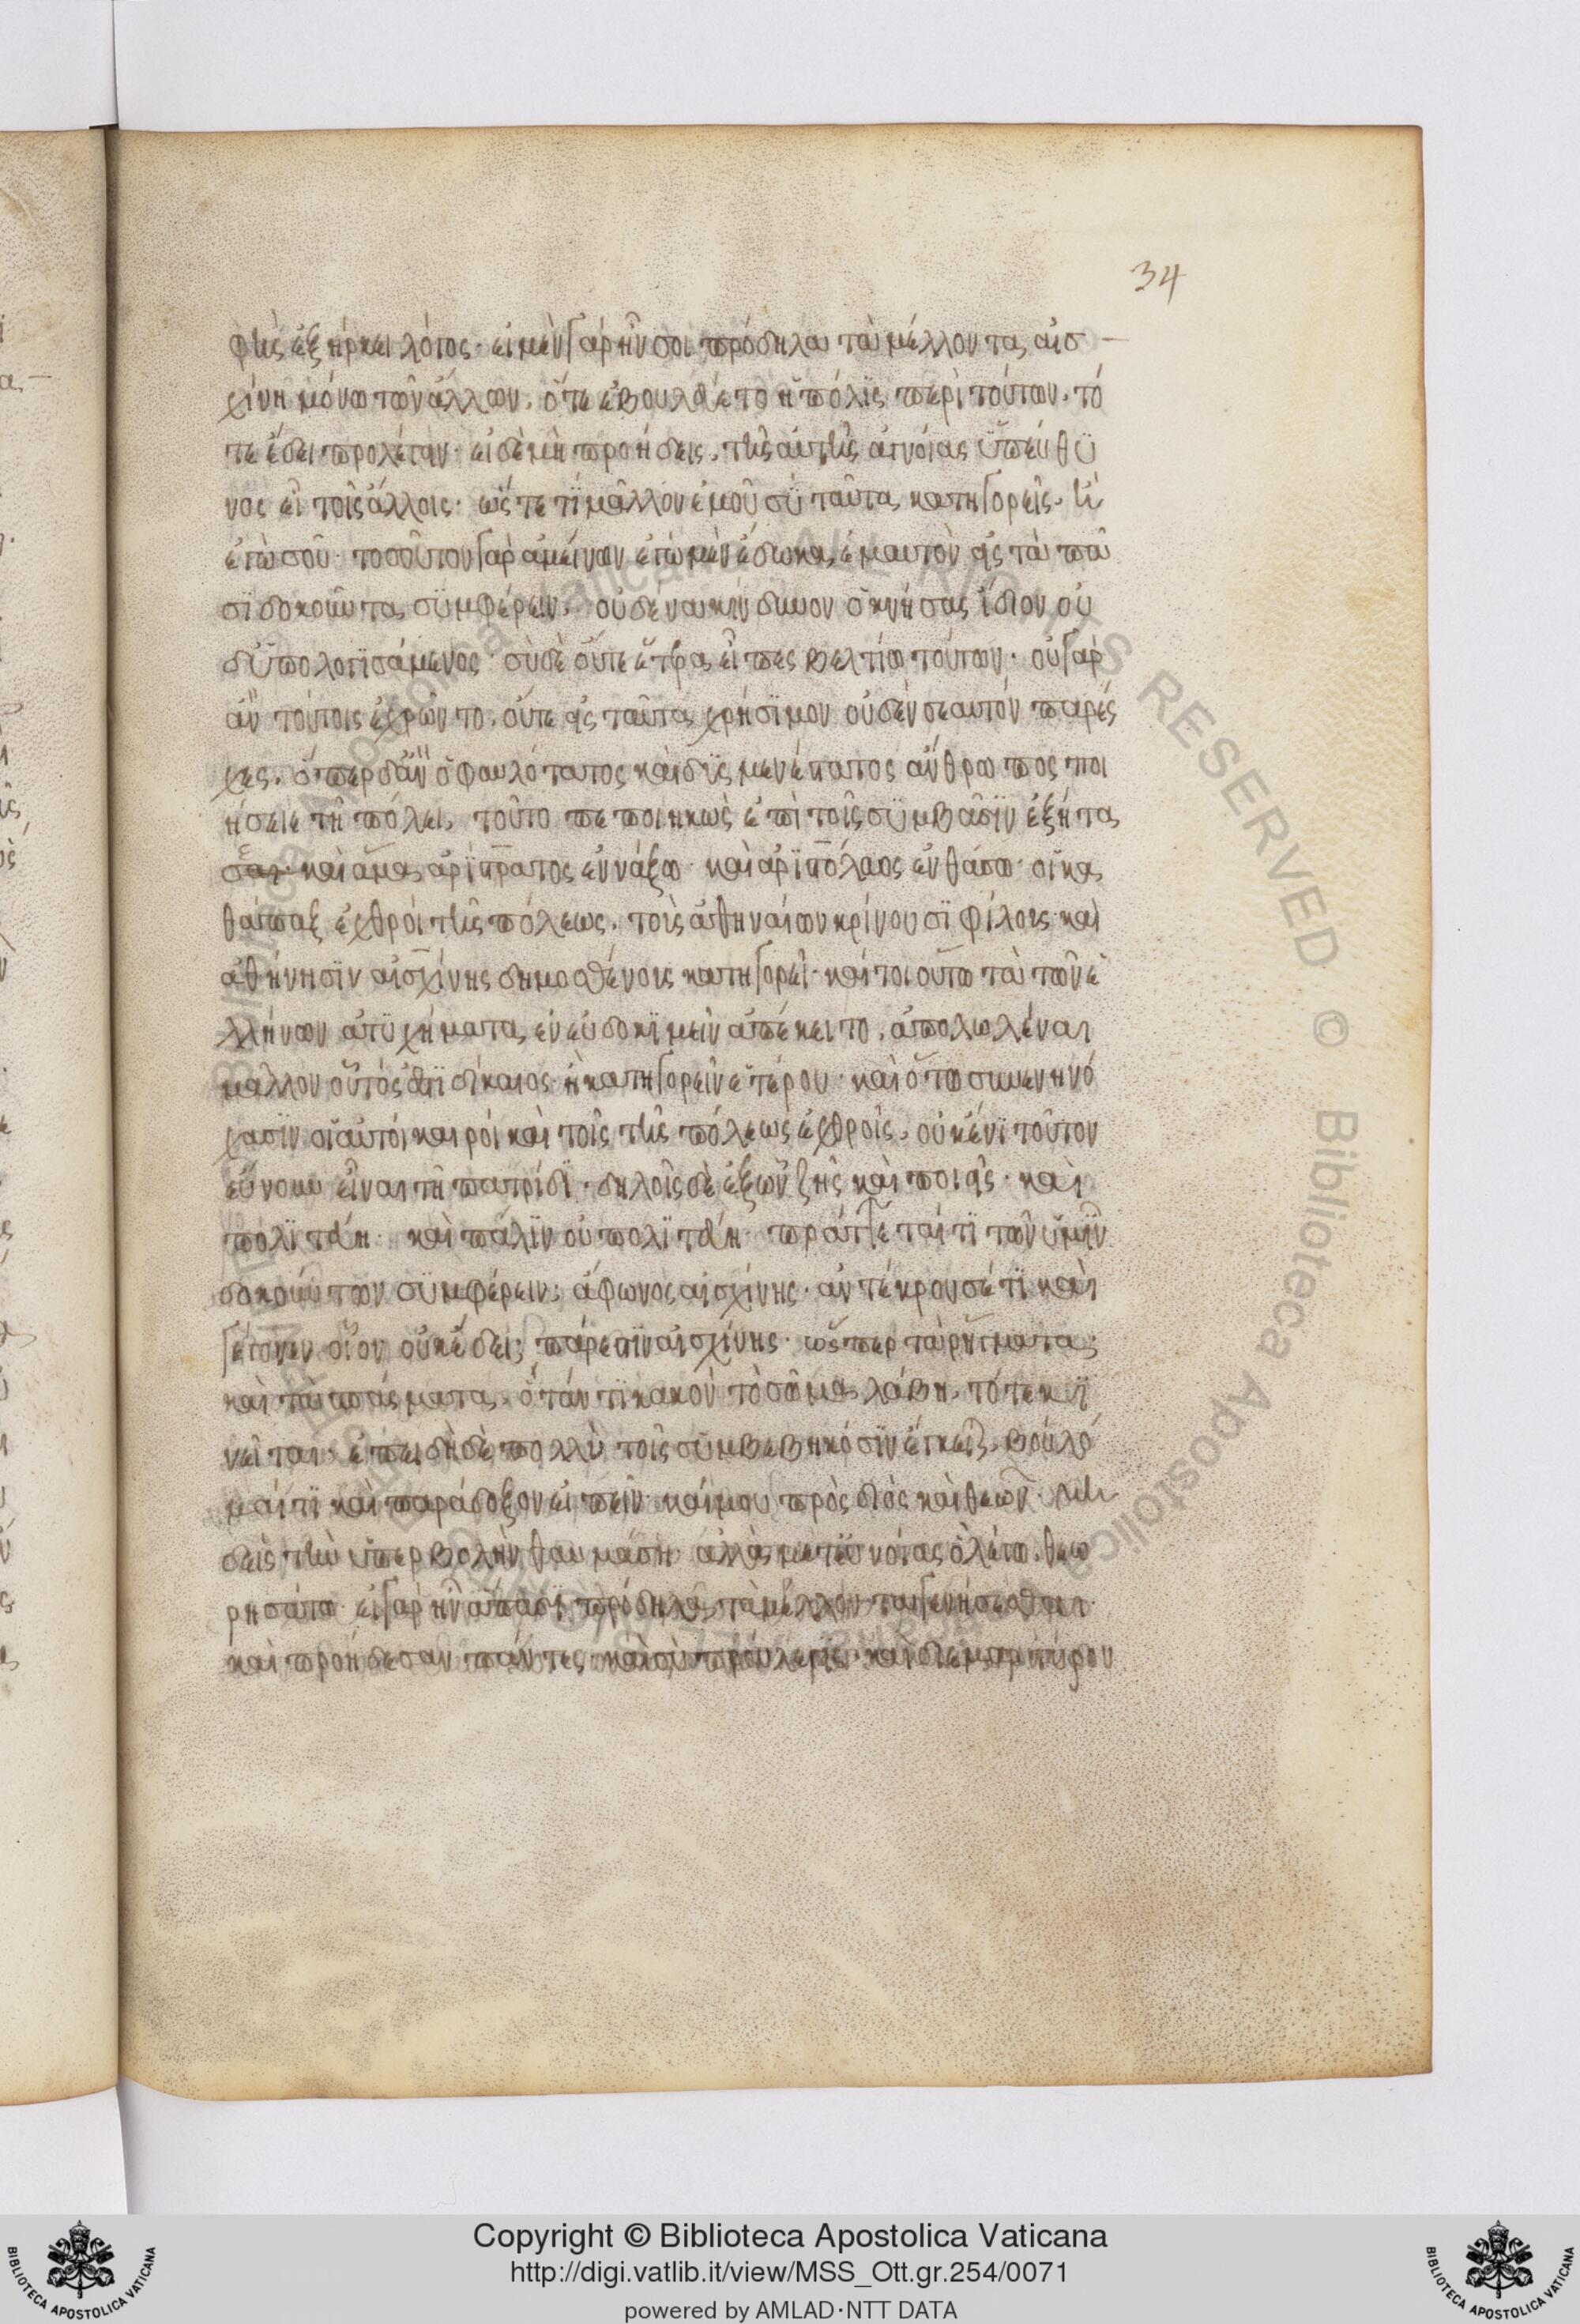 34
φ τῆς ἐξήρκει λόγος· εἰ μὲν γὰρ ἦν σοι πρόδηλα τὰ μέλλοντα αἰσ
χίνη μόνω τῶν ἄλλων, ὅτε ἐβουλεύετο ἡ πόλις περὶ τούτων, τό
τε ἔδει προλέγειν· εἰ δὲ μὴ προήδεις, τῆς αὐτῆς ἀγνοίας ὑπεύθυ
νος εἶ τοῖς ἄλλοις· ὥστε τί μᾶλλον ἐμοῦ σὺ ταῦτα κατηγορεῖς, ἢ
ἐγὼ σοῦ· τοσοῦτον γὰρ ἀμείνων ἐγὼ μὲν ἔδωκα ἐμαυτὸν εἰς τὰ πᾶ
σι δοκοῦντα συμφέρειν, οὐδένα κίνδυνον ὀκνήσας ἴδιον οὐ
δ' ὑπολογισάμενος· σὺ δὲ οὔτε ἕτερα εἶπες βελτίω τούτων· οὐ γὰρ
ἂν τούτοις ἐχρῶντο, οὔτε εἰς ταῦτα χρήσιμον οὐδὲν σεαυτὸν παρές
χες. ὅπερ δ' ἂν ὁ φαυλότατος καὶ δυσμενέστατος ἄνθρωπος ποι
ήσειε τῆ πόλει, τοῦτο πεποιηκὼς ἐπὶ τοῖς συμβᾶσιν ἐξήτα
σαι· καὶ ἅμα ἀρίστρατος ἐν νάξω καὶ ἀριστόλαος ἐν θάσω· οἱ κα
θάπαξ ἐχθροὶ τῆς πόλεως, τοὺς ἀθηναίων κρίνουσι φίλους καὶ
ἀθήνησιν αἰσχίνης δημοσθένους κατηγορεῖ· καίτοι ὅτω τὰ τῶν ἑ
λλήνων ἀτυχήματα ἐνευδοκιμεῖν ἀπέκειτο, ἀπολωλέναι
μᾶλλον οὗτός ἐστι δίκαιος ἢ κατηγορεῖν ἑτέρου· καὶ ὅτω συνενηνό
χασιν οἱ αὐτοὶ καιροὶ καὶ τοῖς τῆς πόλεως ἐχθροῖς, οὐκ ἔνι τοῦτον
εὔνουν εἶναι τῆ πατρίδι· δηλοῖς δὲ ἐξ ὧν ζῆς καὶ ποιεῖς· καὶ
πολιτεύη· καὶ πάλιν οὐ πολιτεύη· πράττεταί τι τῶν ὑμῖν
δοκούντων συμφέρειν; ἄφωνος αἰσχίνης· ἀντέκρουσέ τι καὶ
γέγονεν οἷον οὐκ ἔδει; πάρεστιν αἰσχίνης· ὥσπερ τὰ ῥήγματα
καὶ τὰ σπάσματα, ὅταν τι κακὸν τὸ σῶμα λάβη, τότε κι
νεῖται· ἐπειδὴ δὲ πολλὺ τοῖς συμβεβηκόσιν ἔγκειται, βούλο
μαί τι καὶ παράδοξον εἰπεῖν· καί μου πρὸς διὸς καὶ θεῶν μη
δεὶς τὴν ὑπερβολὴν θαυμάση ἀλλὰ μετ' εὐνοίας ὃ λέγω θεω
ρησάτω· εἰ γὰρ ἦν ἅπασι πρόδηλα τὰ μέλλοντα γενήσεσθαι
καὶ προήδεσαν πάντες· καὶ σὺ προὔλεγες· καὶ διεμαρτύρου
Copyright © Biblioteca Apostolica Vaticana
http://digi.vatlib.it/view/MSS_Ott.gr.254/0071
powered by AMLAD·NTT DATA